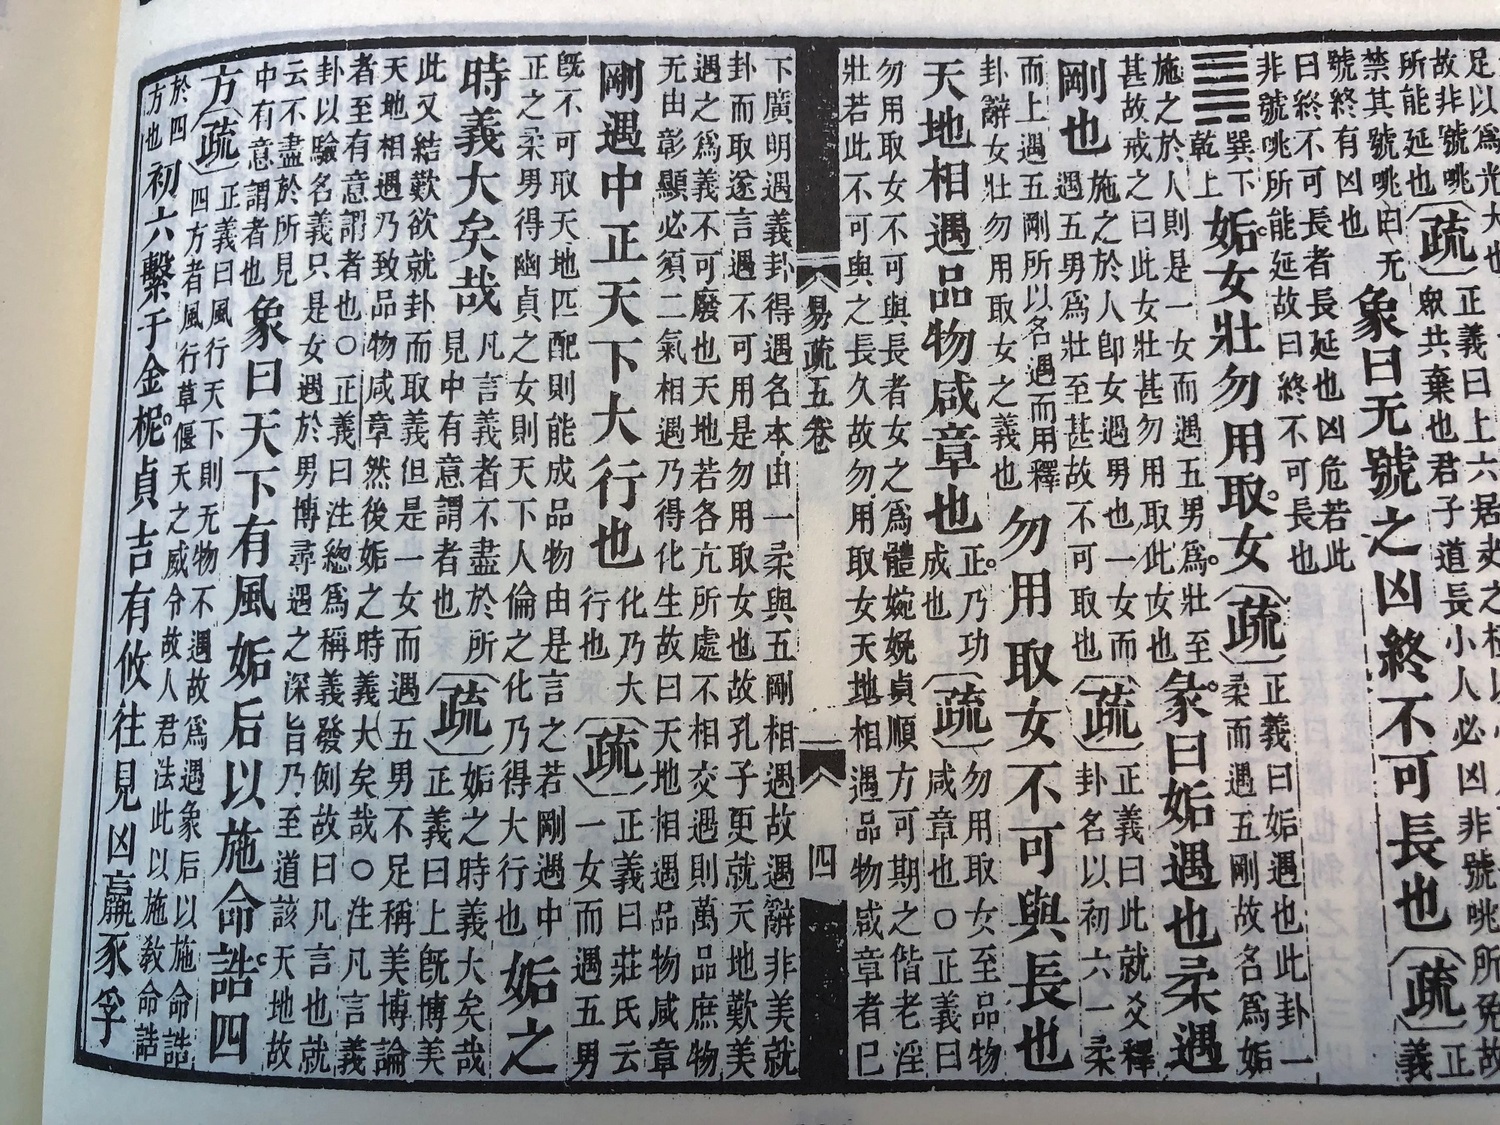 足以爲光大也
故非號咷
所能延也〔疏〕正義曰上六居夬之極以小
禁其號咷曰无衆共棄也君子道長小人必凶非號咷所免故
號終有凶也象曰无號之凶終不可長也〔疏〕正義
曰終不可長者長延也凶危若此
非號咷所能延故曰終不可長也
巽下
乾上姤女壯勿用取女〔疏〕正義曰姤遇也此卦一
柔而遇五剛故名爲姤
施之於人則是一女而遇五男爲壯至
甚故戒之曰此女壯甚勿用取此女也彖曰姤遇也柔遇
剛也施之於人卽女遇男也一女而
遇五男爲壯至甚故不可取也〔疏〕正義曰此就爻釋
卦名以初六一柔
而上遇五剛所以名遇而用釋
卦辭女壯勿用取女之義也勿用取女不可與長也
天地相遇品物咸章也正乃功
成也〔疏〕勿用取女至品物
咸章也○正義曰
勿用取女不可與長者女之爲體婉娩貞順方可期之偕老淫
壯若此不可與之長久故勿用取女天地相遇品物咸章者已
易疏五卷
四
下廣明遇義卦得遇名本由一柔與五剛相遇故遇辭非美就
卦而取遂言遇不可用是勿用取女也故孔子更就天地歎美
遇之爲義不可廢也天地若各亢所處不相交遇則萬品庶物
无由彰顯必須二氣相遇乃得化生故曰天地相遇品物咸章
剛遇中正天下大行也化乃大
行也〔疏〕正義曰莊氏云
一女而遇五男
旣不可取天地匹配則能成品物由是言之若剛遇中
正之柔男得幽貞之女則天下人倫之化乃得大行也姤之
時義大矣哉凡言義者不盡於所
見中有意謂者也〔疏〕姤之時義大矣哉
正義曰上旣博美
此又結歎欲就卦而取義但是一女而遇五男不足稱美博論
天地相遇乃致品物咸章然後姤之時義大矣哉○注凡言義
者至有意謂者也○正義曰注總爲稱義發例故曰凡言也就
卦以驗名義只是女遇於男博尋遇之深旨乃至道該天地故
云不盡於所見
中有意謂者也象曰天下有風姤后以施命誥四
方〔疏〕正義曰風行天下則无物不遇故爲遇象后以施命誥
四方者風行草偃天之威令故人君法此以施敎命誥
於四
方也初六繫于金柅貞吉有攸往見凶羸豕孚